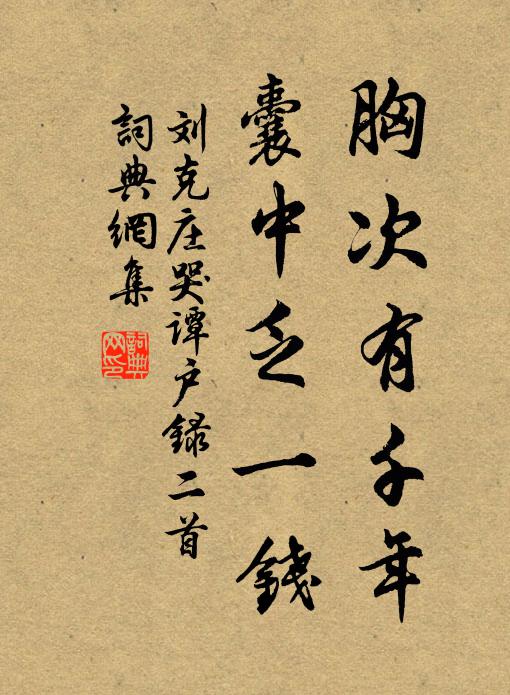 胸次有千年
囊中乏一錢
刘克庄哭谭户錄二首
詞典網集
詞典網印